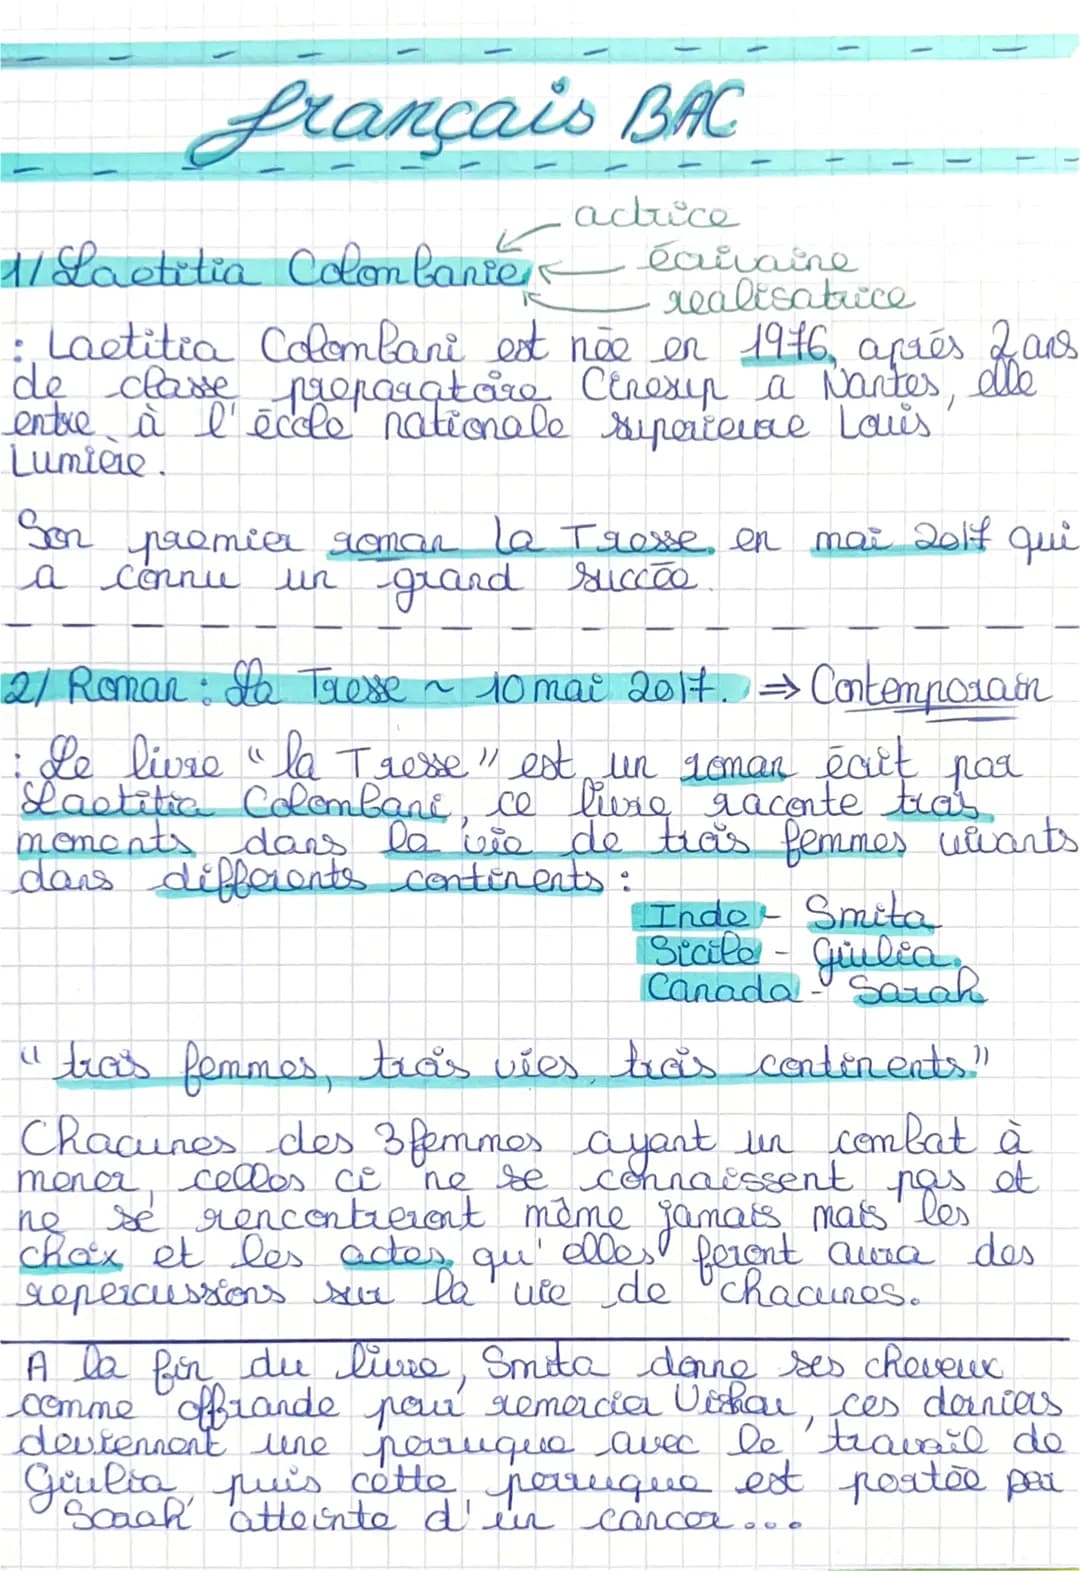 français BAC
actrice
écrivaine
realisatrice
1/ Laetitia Colombanie
: Laetitia Colombani est née en 1976, aprés 2 ans
de classe preparatoire Cinesup a Nantes, elle
entre à l'école nationale superieure Louis
Lumière.
Son premier roman la Tresse en mai 2017 qui
a connu un grand succée.
2/ Roman : La Tresse ~ 10 mai 2017. ⇒ Contemporain
: Le livre "la Tresse" est un roman écrit par
Laetitia Colombani, ce livre raconte trois
moments dans la vie de trois femmes vivants
dans differents continents :
Inde - Smita
Sicile - Giulia
Canada - Sarah
"trois femmes, trois vies, trois continents"
Chacunes des 3 femmes ayant un combat à
mener, celles ci ne se connaissent pas et
ne se rencontreront même jamais mais les
choix et les actes qu'elles feront aura des
repercussions sur la vie de chacunes.
A la fin du livre, Smita donne ses cheveux
comme offrande pour remercier Vishnu, ces derniers
deviennent une perruque avec le travail de
Giulia, puis cette perruque est portée par
Sarah atteinte d'un cancer...